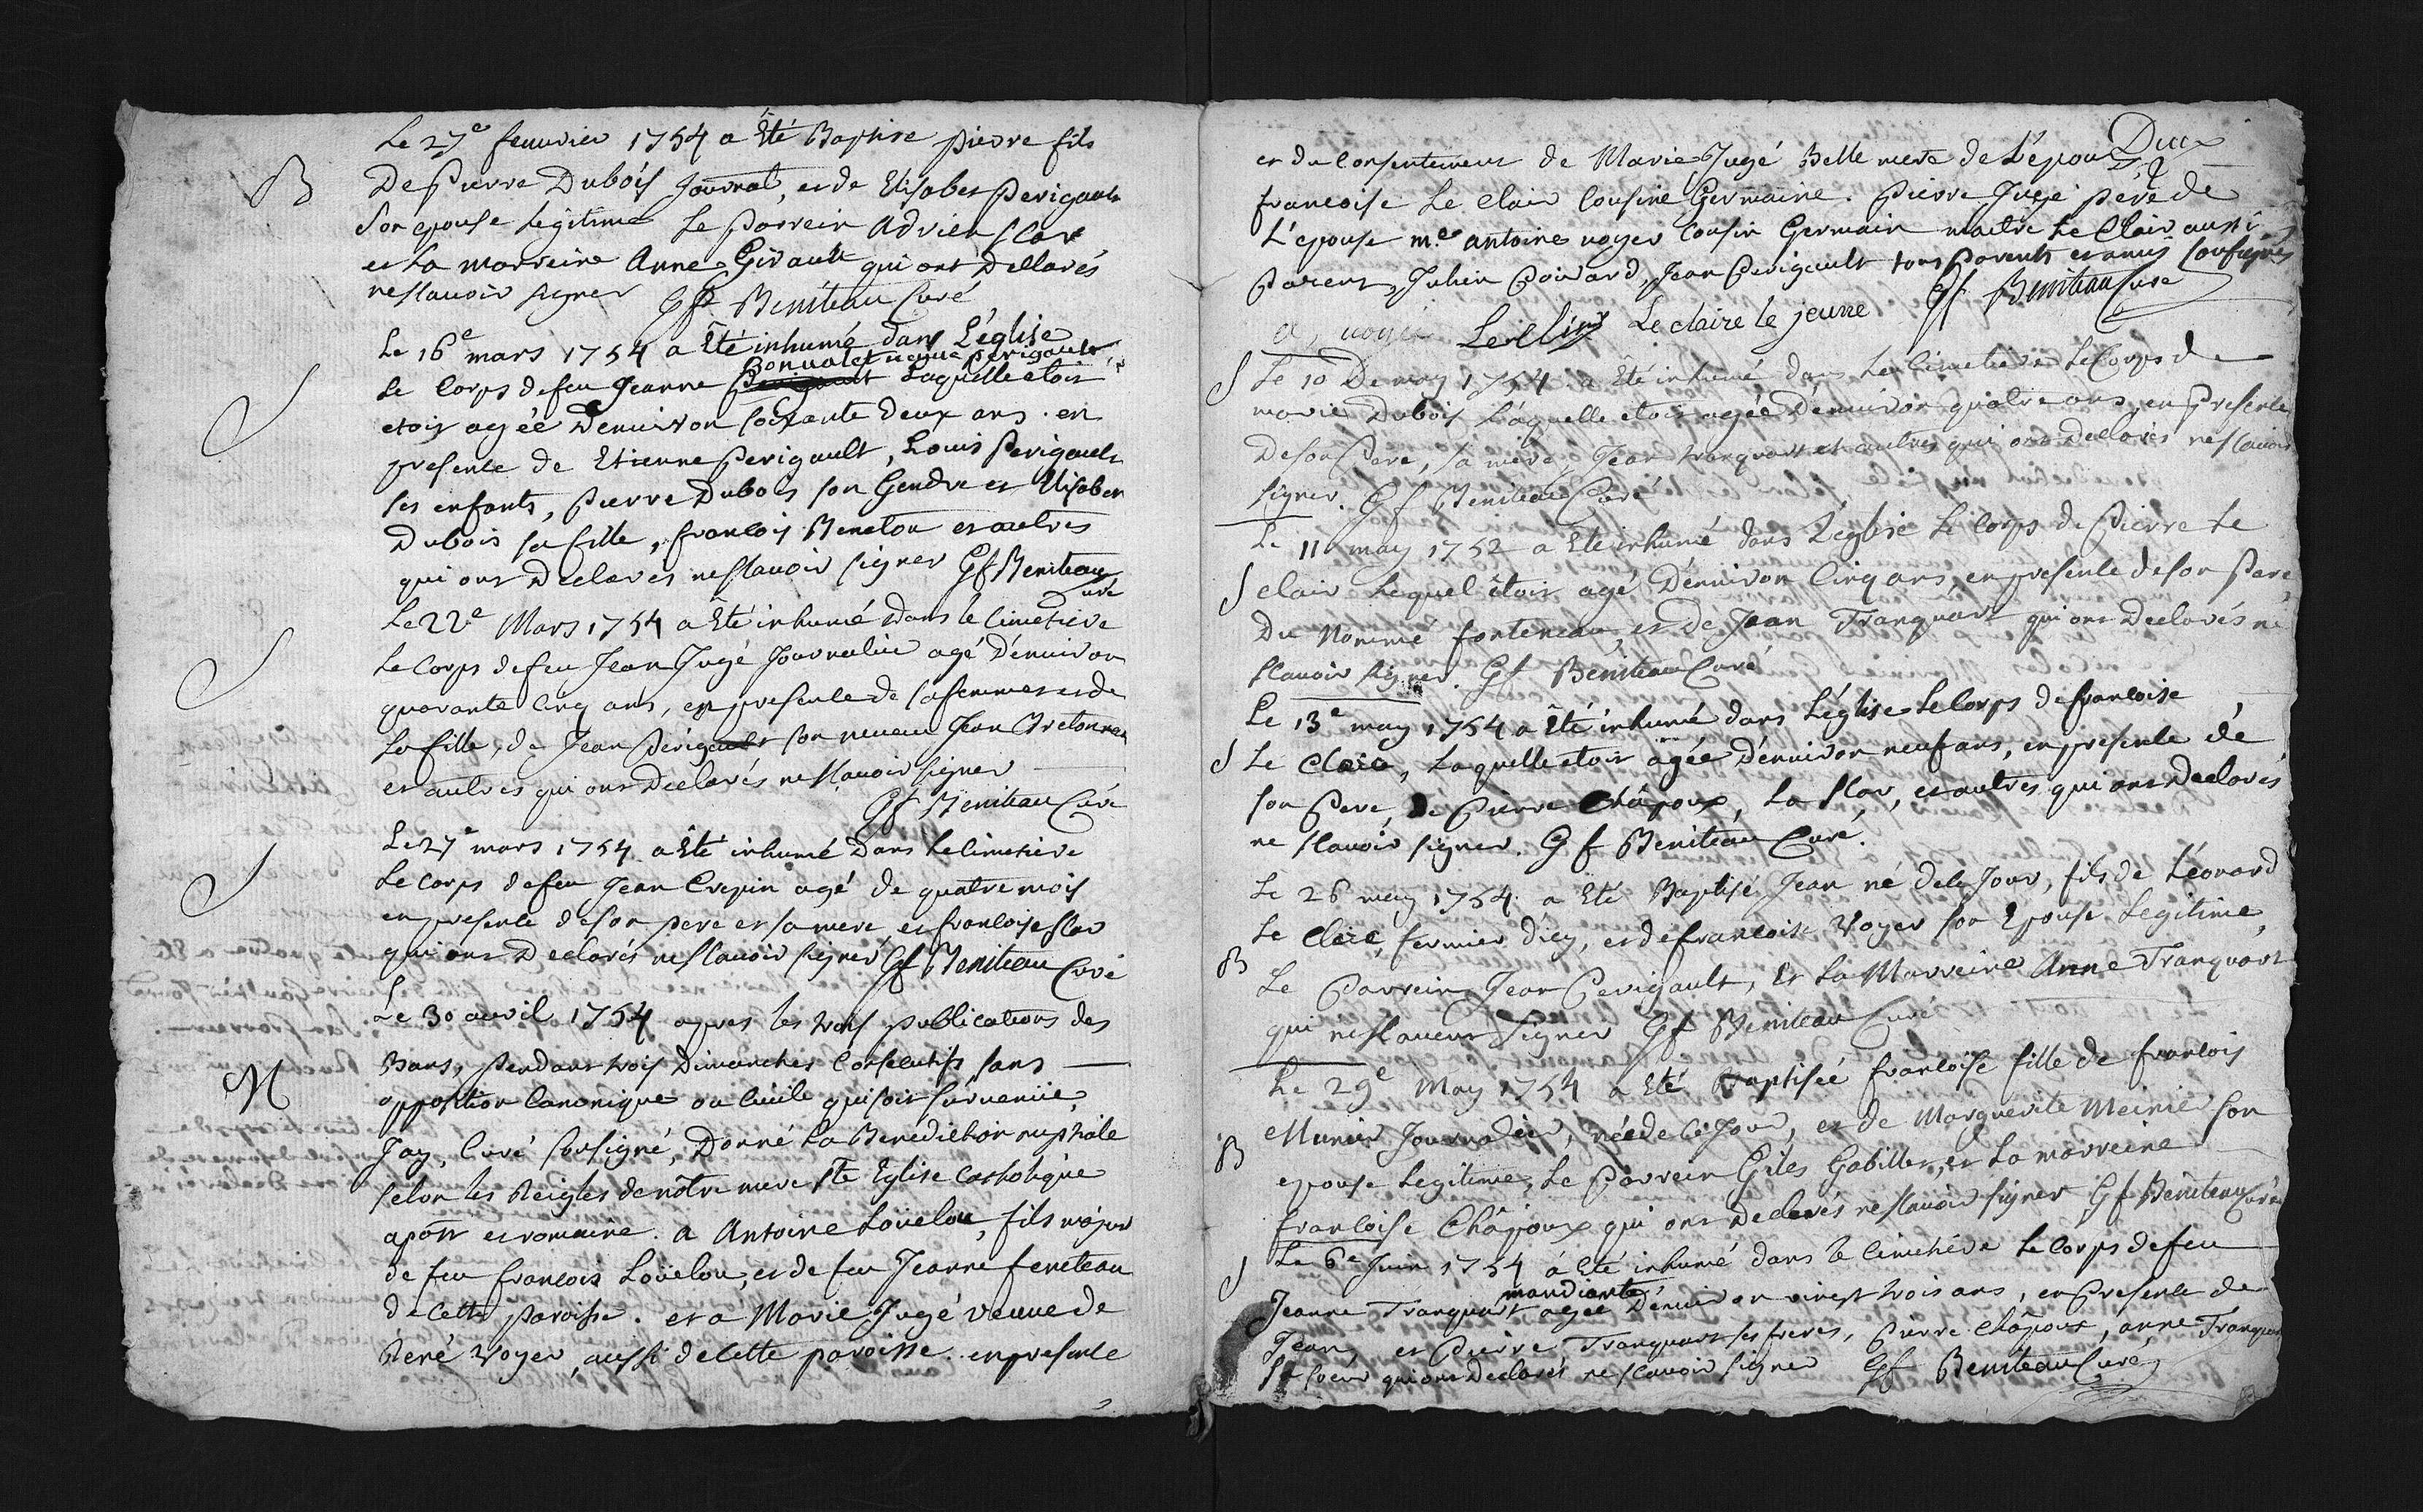 Le 27e feuvrier 1754 a Eté Baptise pierre fils
B
De Pierre Dubois Journal, et de Elisabet Perigault
Son epouse legitime Le Parrein Adrien Slav
et La marreine Anne Girault qui ont Dellarés
ne slavoir signer Gf. Beniteau Curé
Le 16e mars 1754 a Eté inhumé dans L'église
S
Bonvalet veuve perigault
Le Corps de feu Jeanne Laquelle etoit
etoit agéé Denuiron soixante Deux ans. en
presence de Etienne Perigault, Louis Perigault
ses enfants, Pierre Dubois son Gendre et Elisabet
Dubois sa fille, francois Beneton et autres
qui ont Declarés ne slavoir signer Gf Beniteau
Curé
Le 22e Mars 1754 a Eté inhumé Dans le Cimetiere
S
Le Corps de feu Jean Jugé Journalier agé D'enuiron
quarante Cinq ans, en presence de sa femme et de
sa fille, de Jean Perigault son neveu Jean Bretonneau
et autres qui ont Declarés ne slavoir signer
Gf Beniteau Curé
Le 27e mars 1754 a Eté inhumé Dans Le Cimetiere
S
Le Corps de feu Jean Crepin agé de quatre mois
en presence de son pere et sa mere et francoise slav
qui ont Declarés ne slavoir signer Gf Beniteau Curé
Le 30 auril 1754 apres les trois publications des
M
Bans, pendant trois Dimanches Consecutifs sans
opposition Canonique ou Ciuile qui soit surueniie,
Jay, Curé soussigné, Donné La Benediction nuptiale
selon les Reigles de nôtre mere Ste Eglise Catholique
apostt et romaine. a Antoine Loüelou, fils majeur
de feu francois Loüelou, et de feu Jeanne feneteau
de Cette paroisse. et a Marie Jugé veuue de
René Voyer, aussi de Cette paroisse. en presence
et du Consentement de Marie Jugé Belle mere de L'epoux
francoise Le Clair Cousine Germaine. Pierre Jugé pere de
L'epouse me antoine voyer Cousin Germain maitre Le Clair aussi
Parent, Julien Poivard, Jean Perigault tous Parents et amis soussignés
a, voyer Le claire le jeune Gf Beniteau Curé
S
Le 10 De may 1754 a Eté inhumé dans Le Cimetiere Le Corps de
marie Dubois Laquelle etoit agéé D'enuiron quatre ans, en Presence
De son Pere, sa mere, Jean tranquart et autres qui ont Declarés ne slavoir
signer. Gf Beniteau Curé
Le 11 may 1752 a Eté inhumé dans L'église Le Corps de Pierre Le
S
Clair Lequel êtoit agé D'enuiron Cinq ans, en presence de son Pere,
Du Nommé fonteneau, et de Jean Tranquart qui ont Declarés ne
slavoir signer. Gf Beniteau Curé
Le 13e may 1754 a Eté inhumé dans L'église Le Corps de francoise
S
Le Clair, Laquelle etoit agéé D'enuiron neuf ans, en presence de
son Pere, de Pierre Châpoux, La Slav, et autres qui ont Declarés
ne slavoir signer. Gf Beniteau Curé.
Le 26 may 1754. a Eté Baptisé Jean né de Ce Jour, fils de Léonard
Le Clere, fermier d'icy, et de francoise Voyer son Epouse Legitime
B
Le Parrein Jean Perigault, Et La Marreine Anne Tranquart
qui ne slavent signer Gf Beniteau Curé
Le 29e May 1754 a Eté Baptiséé francoise fille de francois
Munier Journalier, néé de Ce Jour, et de Marguerite Meinié son
B
epouse Legitime, Le Parrein Giles Gabiller, et La marreine
francoise Châpoux qui ont Declarés ne slavoir signer Gf Beniteau Curé
Le 6e Juin 1754 a Eté inhumé dans le Cimetiére Le Corps de feu
S
mandiante
Jeanne Tranquart agéé D'enuiron vingt trois ans, en Presence de
Jean et Pierre Tranquart ses freres, Pierre Châpoux, anne Tranquart
sa soeur qui ont Declarés ne slavoir signer Gf Beniteau Curé